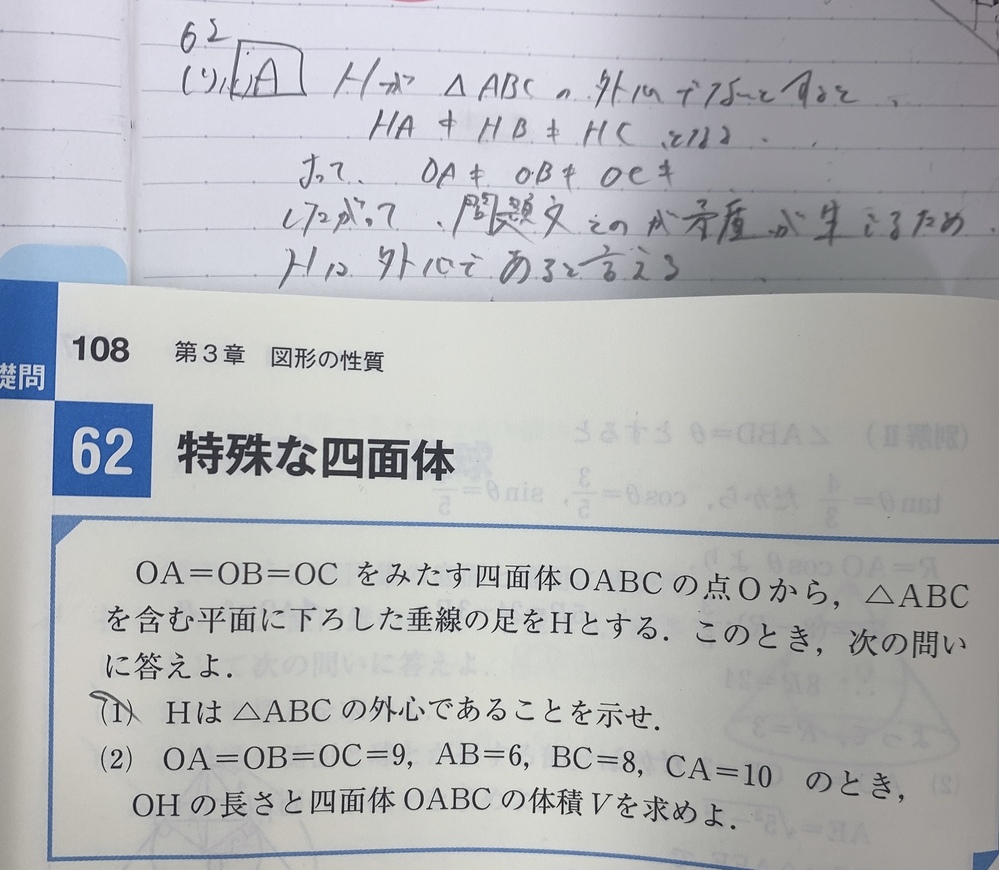 62
(1) A Hが △ABCの外心でないとすると、
HA ≠ HB ≠ HC となる.
よって、 OA ≠ OB ≠ OC ≠
したがって、問題文 が矛盾が生じるため
Hは外心であると言える
礎問
108 第3章 図形の性質
62 特殊な四面体
OA=OB=OC をみたす四面体OABCの点Oから,△ABC
を含む平面に下ろした垂線の足をHとする.このとき,次の問い
に答えよ.
(1) Hは△ABCの外心であることを示せ.
(2) OA=OB=OC=9, AB=6, BC=8, CA=10 のとき,
OHの長さと四面体OABCの体積Vを求めよ.